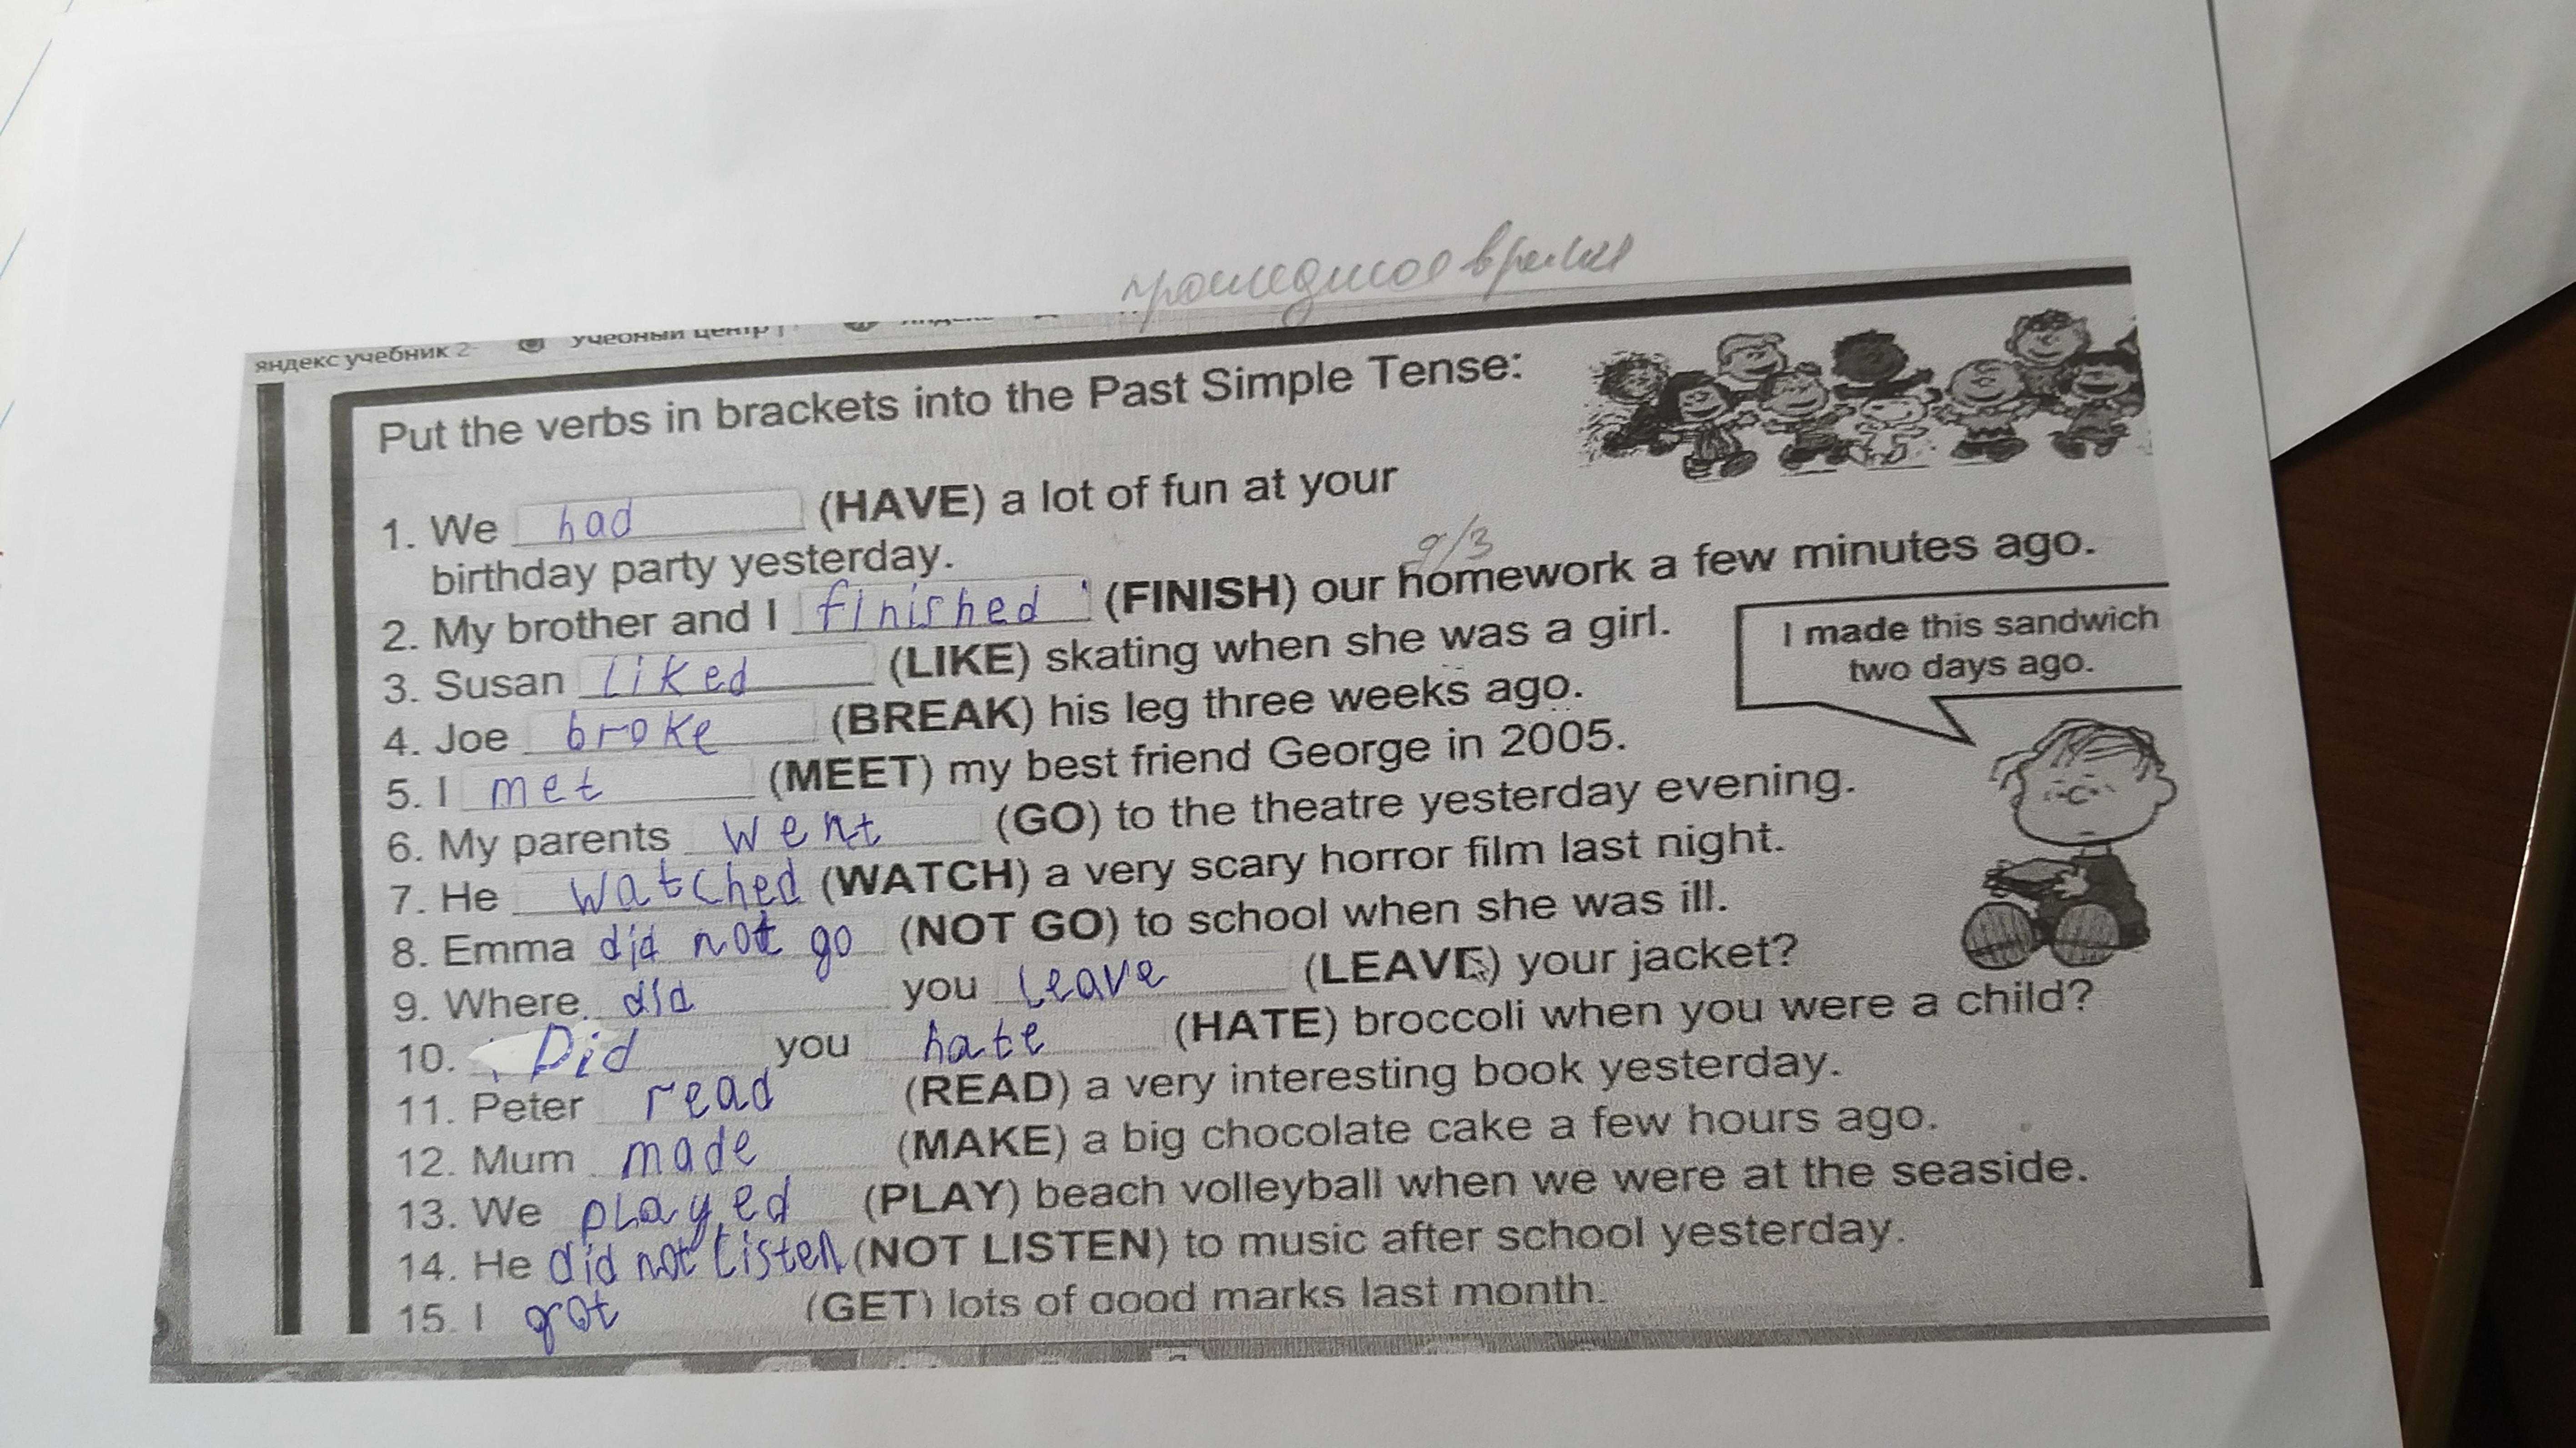 прошедшее время
яндекс учебник 2-
учебный центр |
яндекс
Put the verbs in brackets into the Past Simple Tense:
1. We had (HAVE) a lot of fun at your
birthday party yesterday.
д/з
2. My brother and I finished (FINISH) our homework a few minutes ago.
3. Susan liked (LIKE) skating when she was a girl.
I made this sandwich
two days ago.
4. Joe broke (BREAK) his leg three weeks ago.
5. I met (MEET) my best friend George in 2005.
6. My parents went (GO) to the theatre yesterday evening.
7. He watched (WATCH) a very scary horror film last night.
8. Emma did not go (NOT GO) to school when she was ill.
9. Where did you leave (LEAVE) your jacket?
10. Did you hate (HATE) broccoli when you were a child?
11. Peter read (READ) a very interesting book yesterday.
12. Mum made (MAKE) a big chocolate cake a few hours ago.
13. We played (PLAY) beach volleyball when we were at the seaside.
14. He did not listen (NOT LISTEN) to music after school yesterday.
15. I got (GET) lots of good marks last month.